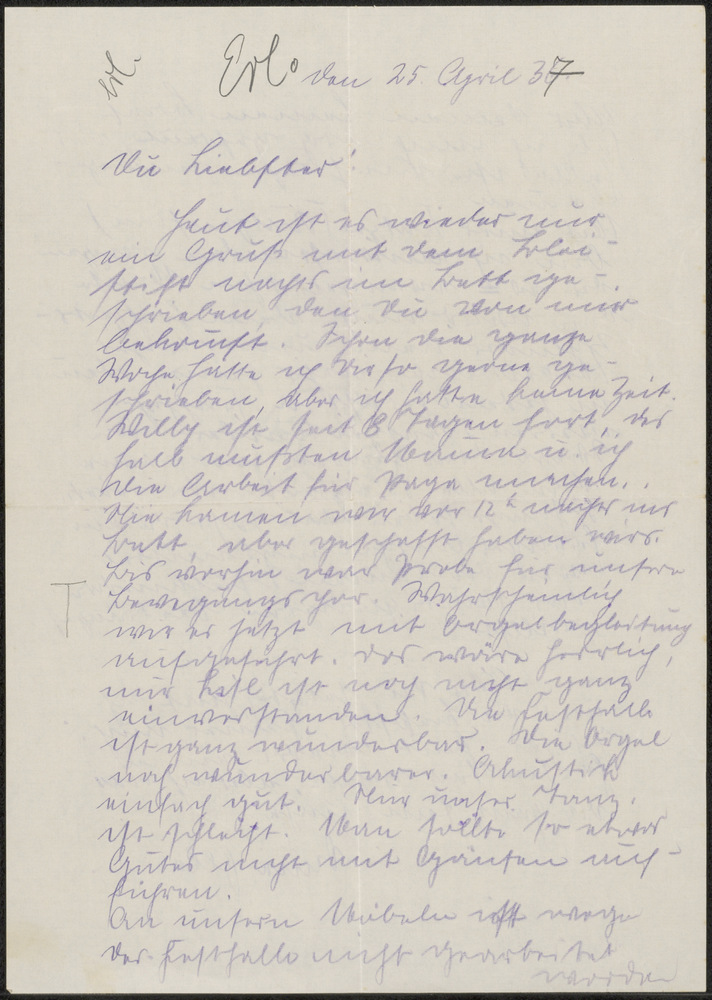 Erl.
Erl. den 25. April 37
Du Liebster!
Heut ist es wieder nur
ein Gruß mit dem Blei-
stift nachts im Bett ge-
schrieben, den Du von mir
bekommst. Schon die ganze
Woche hätte ich Dir so gerne ge-
schrieben, aber ich hatte keine Zeit.
Willy ist seit 8 Tagen fort, des
halb mußten Mama u. ich
die Arbeit für Papa machen.
Nie kamen wir vor 12h nachts ins
Bett, aber geschafft haben wirs.
Bis vorhin war Probe für unsern
Bewegungschor. Wahrscheinlich
wird er jetzt mit Orgelbegleitung
aufgeführt. Das wäre herrlich,
nur ist noch nicht ganz
einverstanden. Die Festhalle
ist ganz wunderbar. Die Orgel
noch wunderbarer. Akustik
einfach gut. Nur unser Tanz
ist schlecht. Man sollte so etwas
Gutes nicht mit Gänsen auf-
führen.
An unsern Möbeln ist wege
der Festhalle nicht gearbeitet
worden